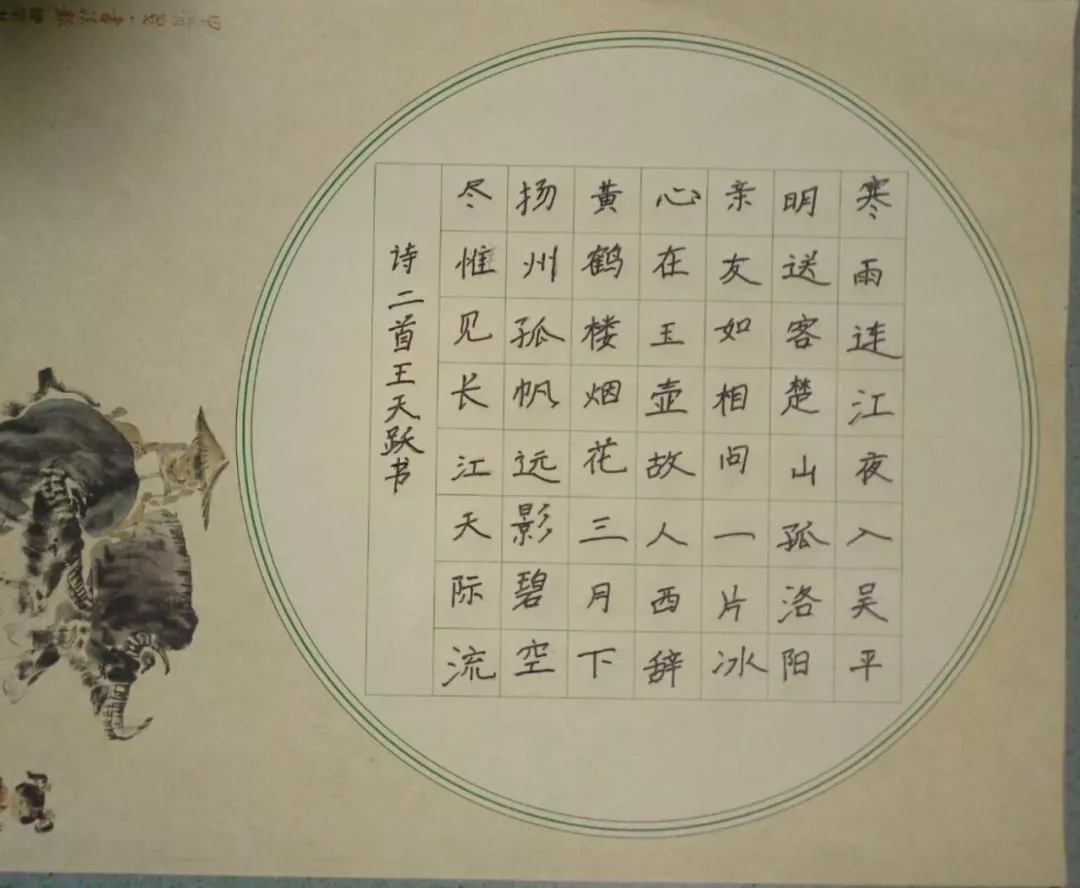 寒雨连江夜入吴平
明送客楚山孤洛阳
亲友如相问一片冰
心在玉壶故人西辞
黄鹤楼烟花三月下
扬州孤帆远影碧空
尽惟见长江天际流
诗二首王天跃书